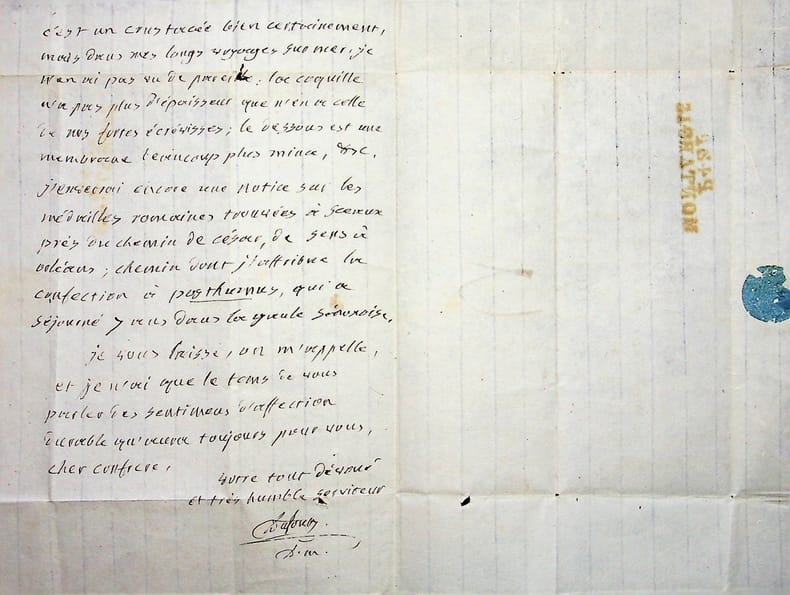 c'est un crustacée bien certainement,
mais dans mes longs voyages sur mer, je
n'en ai pas vu de pareille; la coquille
n'a pas plus d'épaisseur que n'en a celle
de nos fortes écrévisses; le dessous est une
membrane beaucoup plus mince, &c.
j'enverrai encore une notice sur les
médailles romaines trouvées à Sceaux
près du chemin de césar, de sens à
orléans; chemin dont j'attribue la
confection à posthumus, qui a
séjourné 7 ans dans la gaule sénonoise.
je vous laisse, on m'appelle,
et je n'ai que le tems de vous
parler des sentimens d'affection
durable qu'aura toujours pour vous,
cher confrere,
votre tout dévoué
et très humble serviteur
D. m.
MONTARGIS